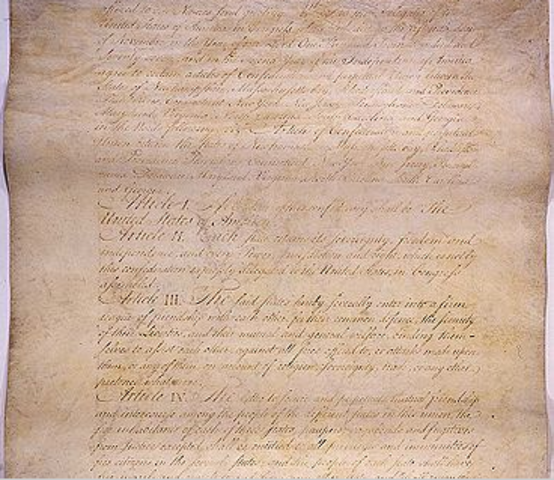 affixed to our Names send greeting. Whereas the Delegates of the
United States of America in Congress assembled did on the
of November in the Year of our Lord One Thousand Seven Hundred and
Seventy seven, and in the Second Year of the Independence of America
agree to certain articles of Confederation and perpetual Union between the
States of Newhampshire, Massachusetts-bay, Rhodeisland and Providence
Plantations, Connecticut, New York, New Jersey, Pennsylvania, Delaware,
Maryland, Virginia, North-Carolina, South-Carolina and Georgia
in the Words following, viz. Articles of Confederation and perpetual
Union between the states of Newhampshire, Massachusetts-bay, Rhodeisland
and Providence Plantations, Connecticut, New York, New Jersey, Pennsyl-
vania, Delaware, Maryland, Virginia, North-Carolina, South-Carolina
and Georgia.
Article I. The Stile of this confederacy shall be "The
United States of America."
Article II. Each state retains its sovereignty, freedom and
independence, and every Power, Jurisdiction and right, which is not by
this confederation expressly delegated to the United States, in Congress
assembled.
Article III. The said states hereby severally enter into a firm
league of friendship with each other, for their common defence, the security
of their Liberties, and their mutual and general welfare, binding them-
selves to assist each other, against all force offered to, or attacks made upon
them, or any of them, on account of religion, sovereignty, trade, or any other
pretence whatever.
Article IV. The better to secure and perpetuate mutual friendship
and intercourse among the people of the different states in this union, the
free inhabitants of each of these states, paupers, vagabonds and fugitives
from Justice excepted, shall be entitled to all privileges and immunities of
free citizens in the several states; and the people of each state shall have